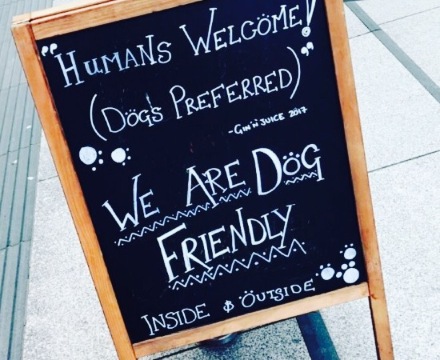 "HUMANS WELCOME!
(DÖGS PREFERRED)"
-GIN 'N' JUICE 2017
WE ARE DÖG
FRIENDLY
INSIDE & ÖUTSIDE